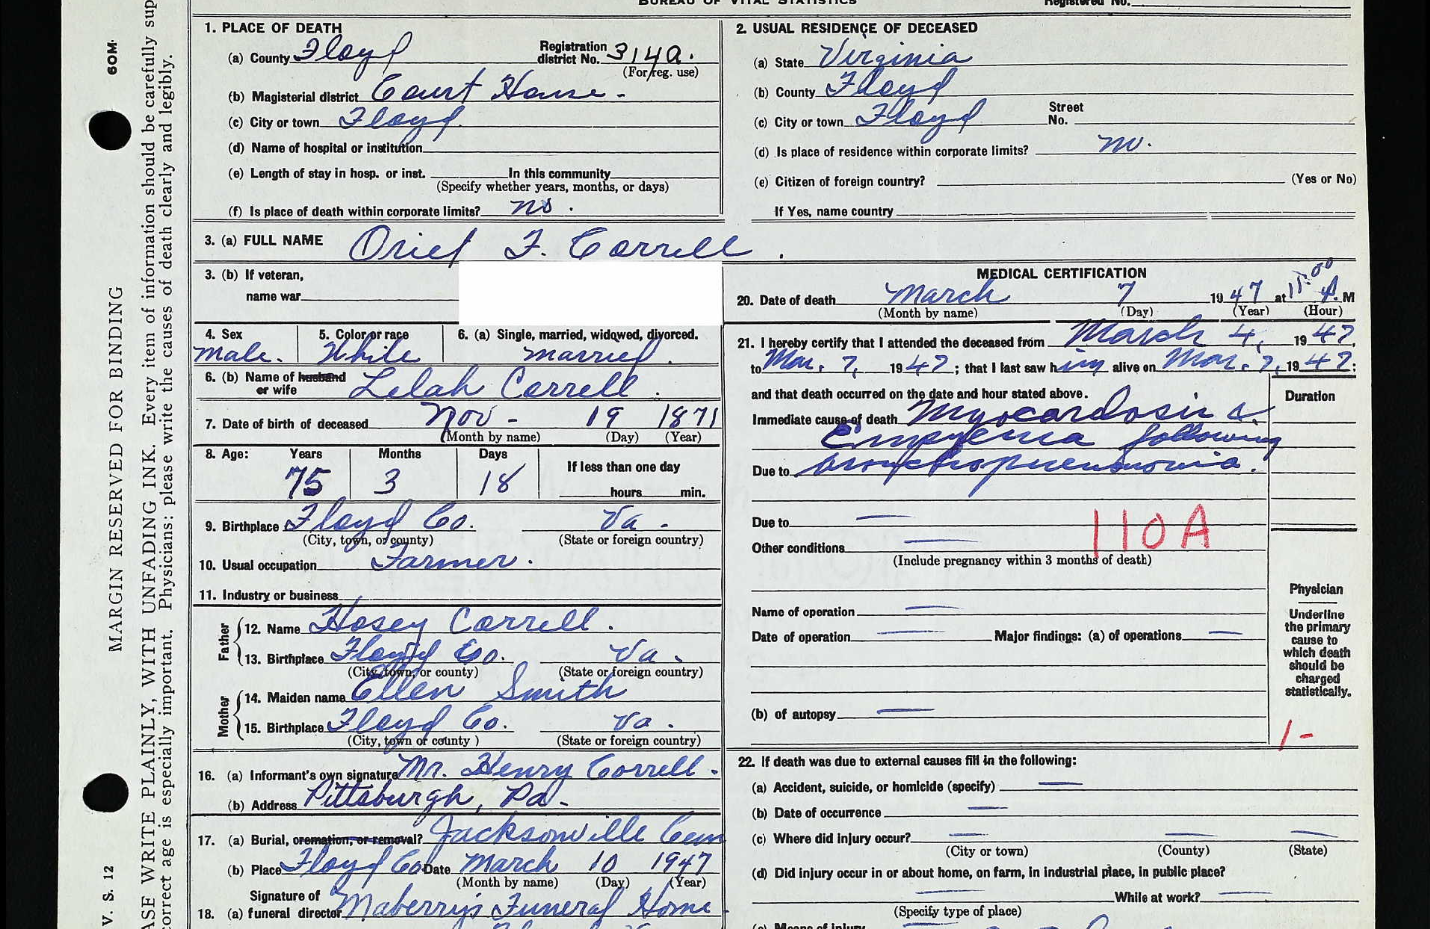 BUREAU OF VITAL STATISTICS
Registered No.
60M
MARGIN RESERVED FOR BINDING
V. S. 12
ASE WRITE PLAINLY, WITH UNFADING INK. Every item of information should be carefully sup
correct age is especially important. Physicians: please write the causes of death clearly and legibly.
1. PLACE OF DEATH
(a) County Floyd Registration district No. 314a.
(For reg. use)
(b) Magisterial district Court House -
(c) City or town Floyd
(d) Name of hospital or institution
(e) Length of stay in hosp. or inst. In this community
(Specify whether years, months, or days)
(f) Is place of death within corporate limits? no.
2. USUAL RESIDENCE OF DECEASED
(a) State Virginia
(b) County Floyd
(c) City or town Floyd Street No.
(d) Is place of residence within corporate limits? no.
(e) Citizen of foreign country? (Yes or No)
If Yes, name country
3. (a) FULL NAME F. Correll.
3. (b) If veteran,
name war
4. Sex 5. Color or race 6. (a) Single, married, widowed, divorced.
Male. White married.
6. (b) Name of husband or wife Lelah Correll.
7. Date of birth of deceased Nov - 19 1871
(Month by name) (Day) (Year)
8. Age: Years Months Days If less than one day
75 3 18 hours min.
9. Birthplace Floyd Co. Va.
(City, town, or county) (State or foreign country)
10. Usual occupation Farmer.
11. Industry or business
Father
12. Name Hosey Correll.
13. Birthplace Floyd Co. Va.
(City, town, or county) (State or foreign country)
Mother
14. Maiden name Ellen Smith
15. Birthplace Floyd Co. Va.
(City, town or county) (State or foreign country)
16. (a) Informant's own signature Mr. Henry Correll.
(b) Address Pittsburgh, Pa-
17. (a) Burial, cremation, or removal? Jacksonville Cem
(b) Place Floyd Co Date March 10 1947
(Month by name) (Day) (Year)
Signature of
18. (a) funeral director Maberry's Funeral Home
MEDICAL CERTIFICATION
20. Date of death March 7 1947 at 11:00 M
(Month by name) (Day) (Year) (Hour)
21. I hereby certify that I attended the deceased from March 4, 1947,
to Mar. 7, 1947; that I last saw him alive on Mar. 7, 1947;
and that death occurred on the date and hour stated above. Duration
Immediate cause of death Myocardosis &
Empyema following
Due to bronchopneumonia.
Due to
Other conditions 110A
(Include pregnancy within 3 months of death)
Name of operation
Date of operation Major findings: (a) of operations
(b) of autopsy
Physician
Underline
the primary
cause to
which death
should be
charged
statistically.
1-
22. If death was due to external causes fill in the following:
(a) Accident, suicide, or homicide (specify)
(b) Date of occurrence
(c) Where did injury occur?
(City or town) (County) (State)
(d) Did injury occur in or about home, on farm, in industrial place, in public place?
While at work?
(Specify type of place)
(e) Means of injury